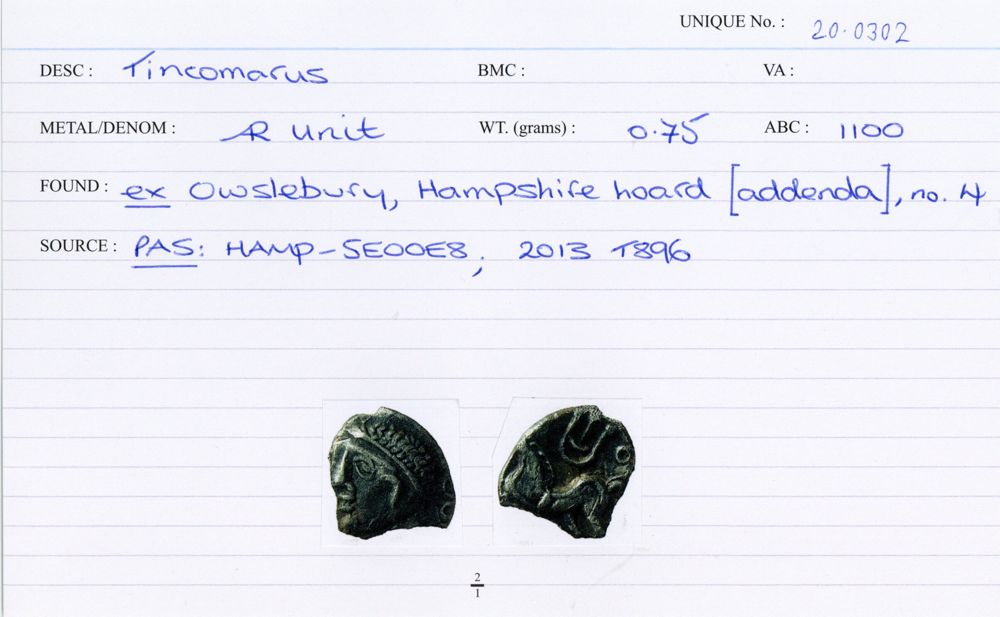 UNIQUE No. : 20.0302
DESC : Tincomarus BMC : VA :
METAL/DENOM : AR unit WT. (grams) : 0.75 ABC : 1100
FOUND : ex Owslebury, Hampshire hoard [addenda], no. 4
SOURCE : PAS: HAMP-5E00E8; 2013 T896
2
1